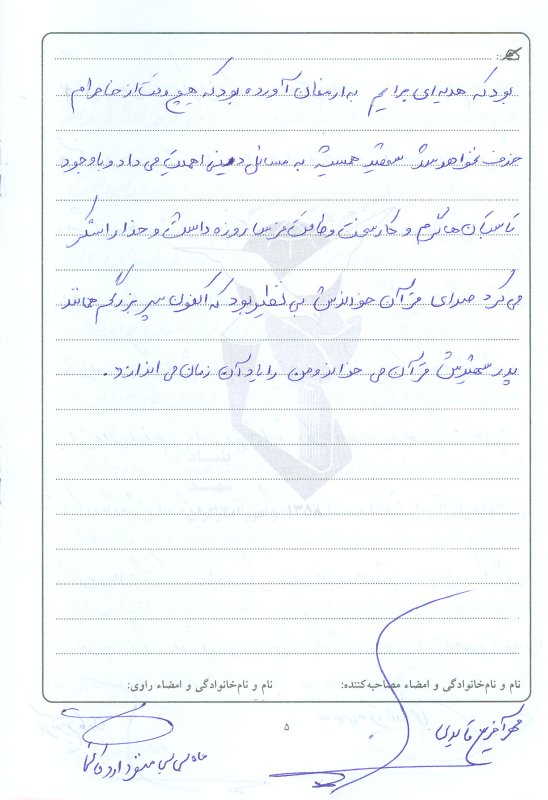 بود که هدیه‌ای برایم به ارمغان آورده بود که هیچ وقت از خاطرم
حذف نخواهد شد شهید همیشه به مسائل دینی اهمیت می داد و با وجود
تابستان ها گرم و کار سخت و طاقت فرسا روزه داشت و خدا را شکر
می کرد صدای قرآن خواندنش بی نظیر بود که اکنون پسر بزرگم همانند
پدر شهیدش قرآن می خواند و من را یاد آن زمان می اندازد.
نام و نام‌خانوادگی و امضاء مصاحبه‌کننده:
نام و نام‌خانوادگی و امضاء راوی:
مهرآفرین قایدی
ماه بی بی
۵